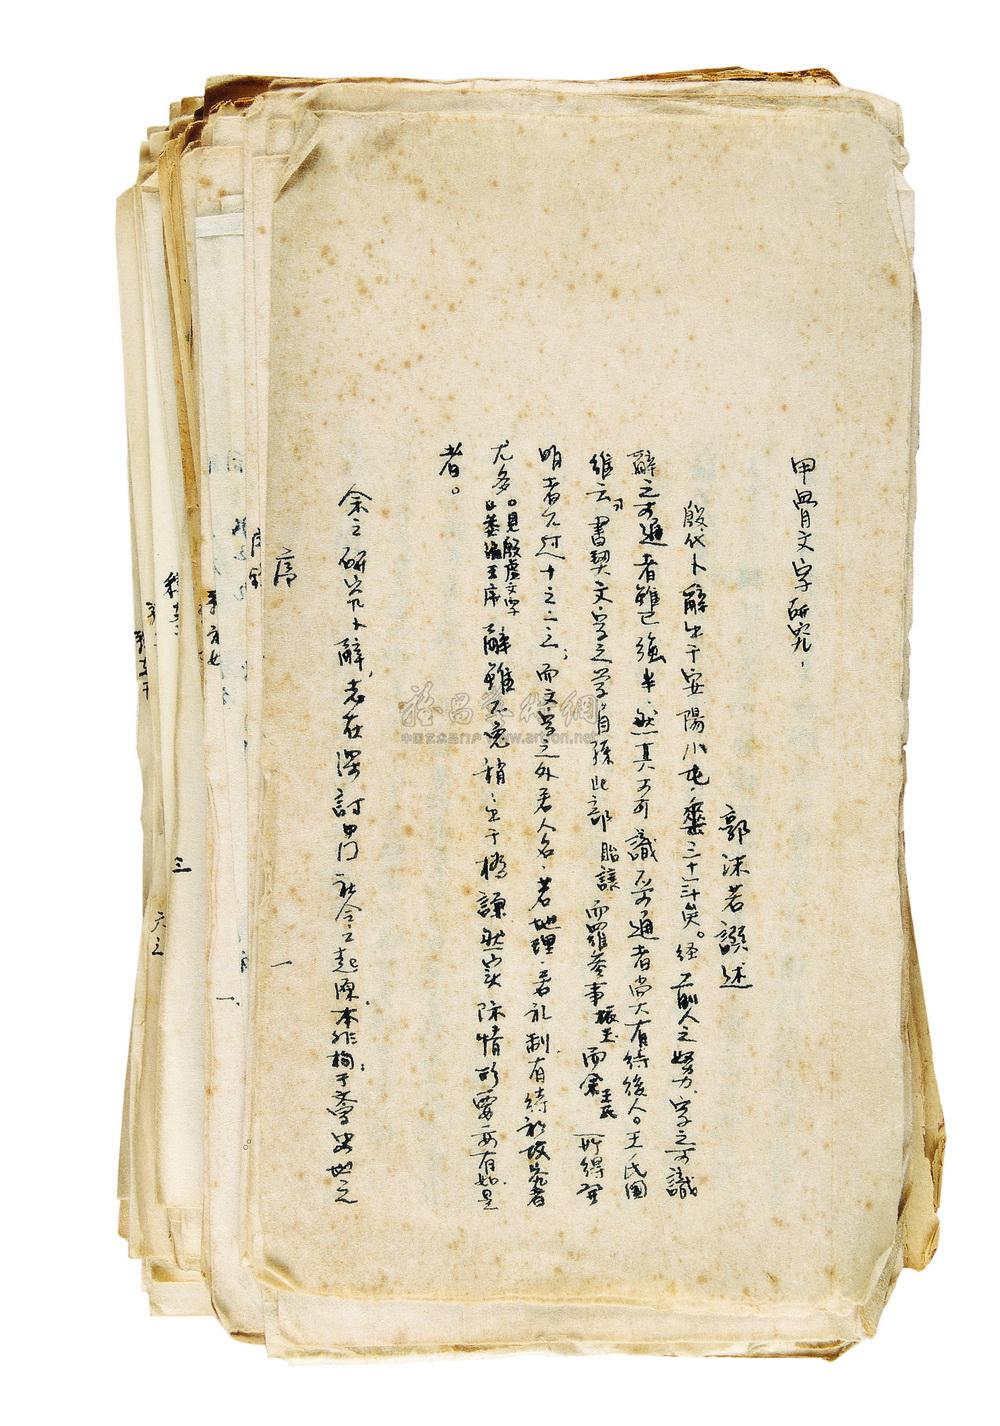 甲骨文字研究
郭沫若譔述
殷代卜辭出于安陽小屯，垂三十年矣。経前人之努力，字之可識
辭之可通者雖已強半，然其不可識不可通者尚大有待後人。王氏國
維云，書契文字之學自孫比部貽讓而羅参事振玉而余王氏所得發
明者不过十之二三；而文字之外若人名、若地理、若礼制有待於攷究者
尤多。見殷虚文字類編王序辭雖不免稍、至于撝謙然实际情形要亦有如是
者。
余之研究卜辭，志在探討中国社会之起源，本非拘于文字史地之
序
一
三
六三
一
雅昌艺术網
中国艺术品门户 www.artron.net